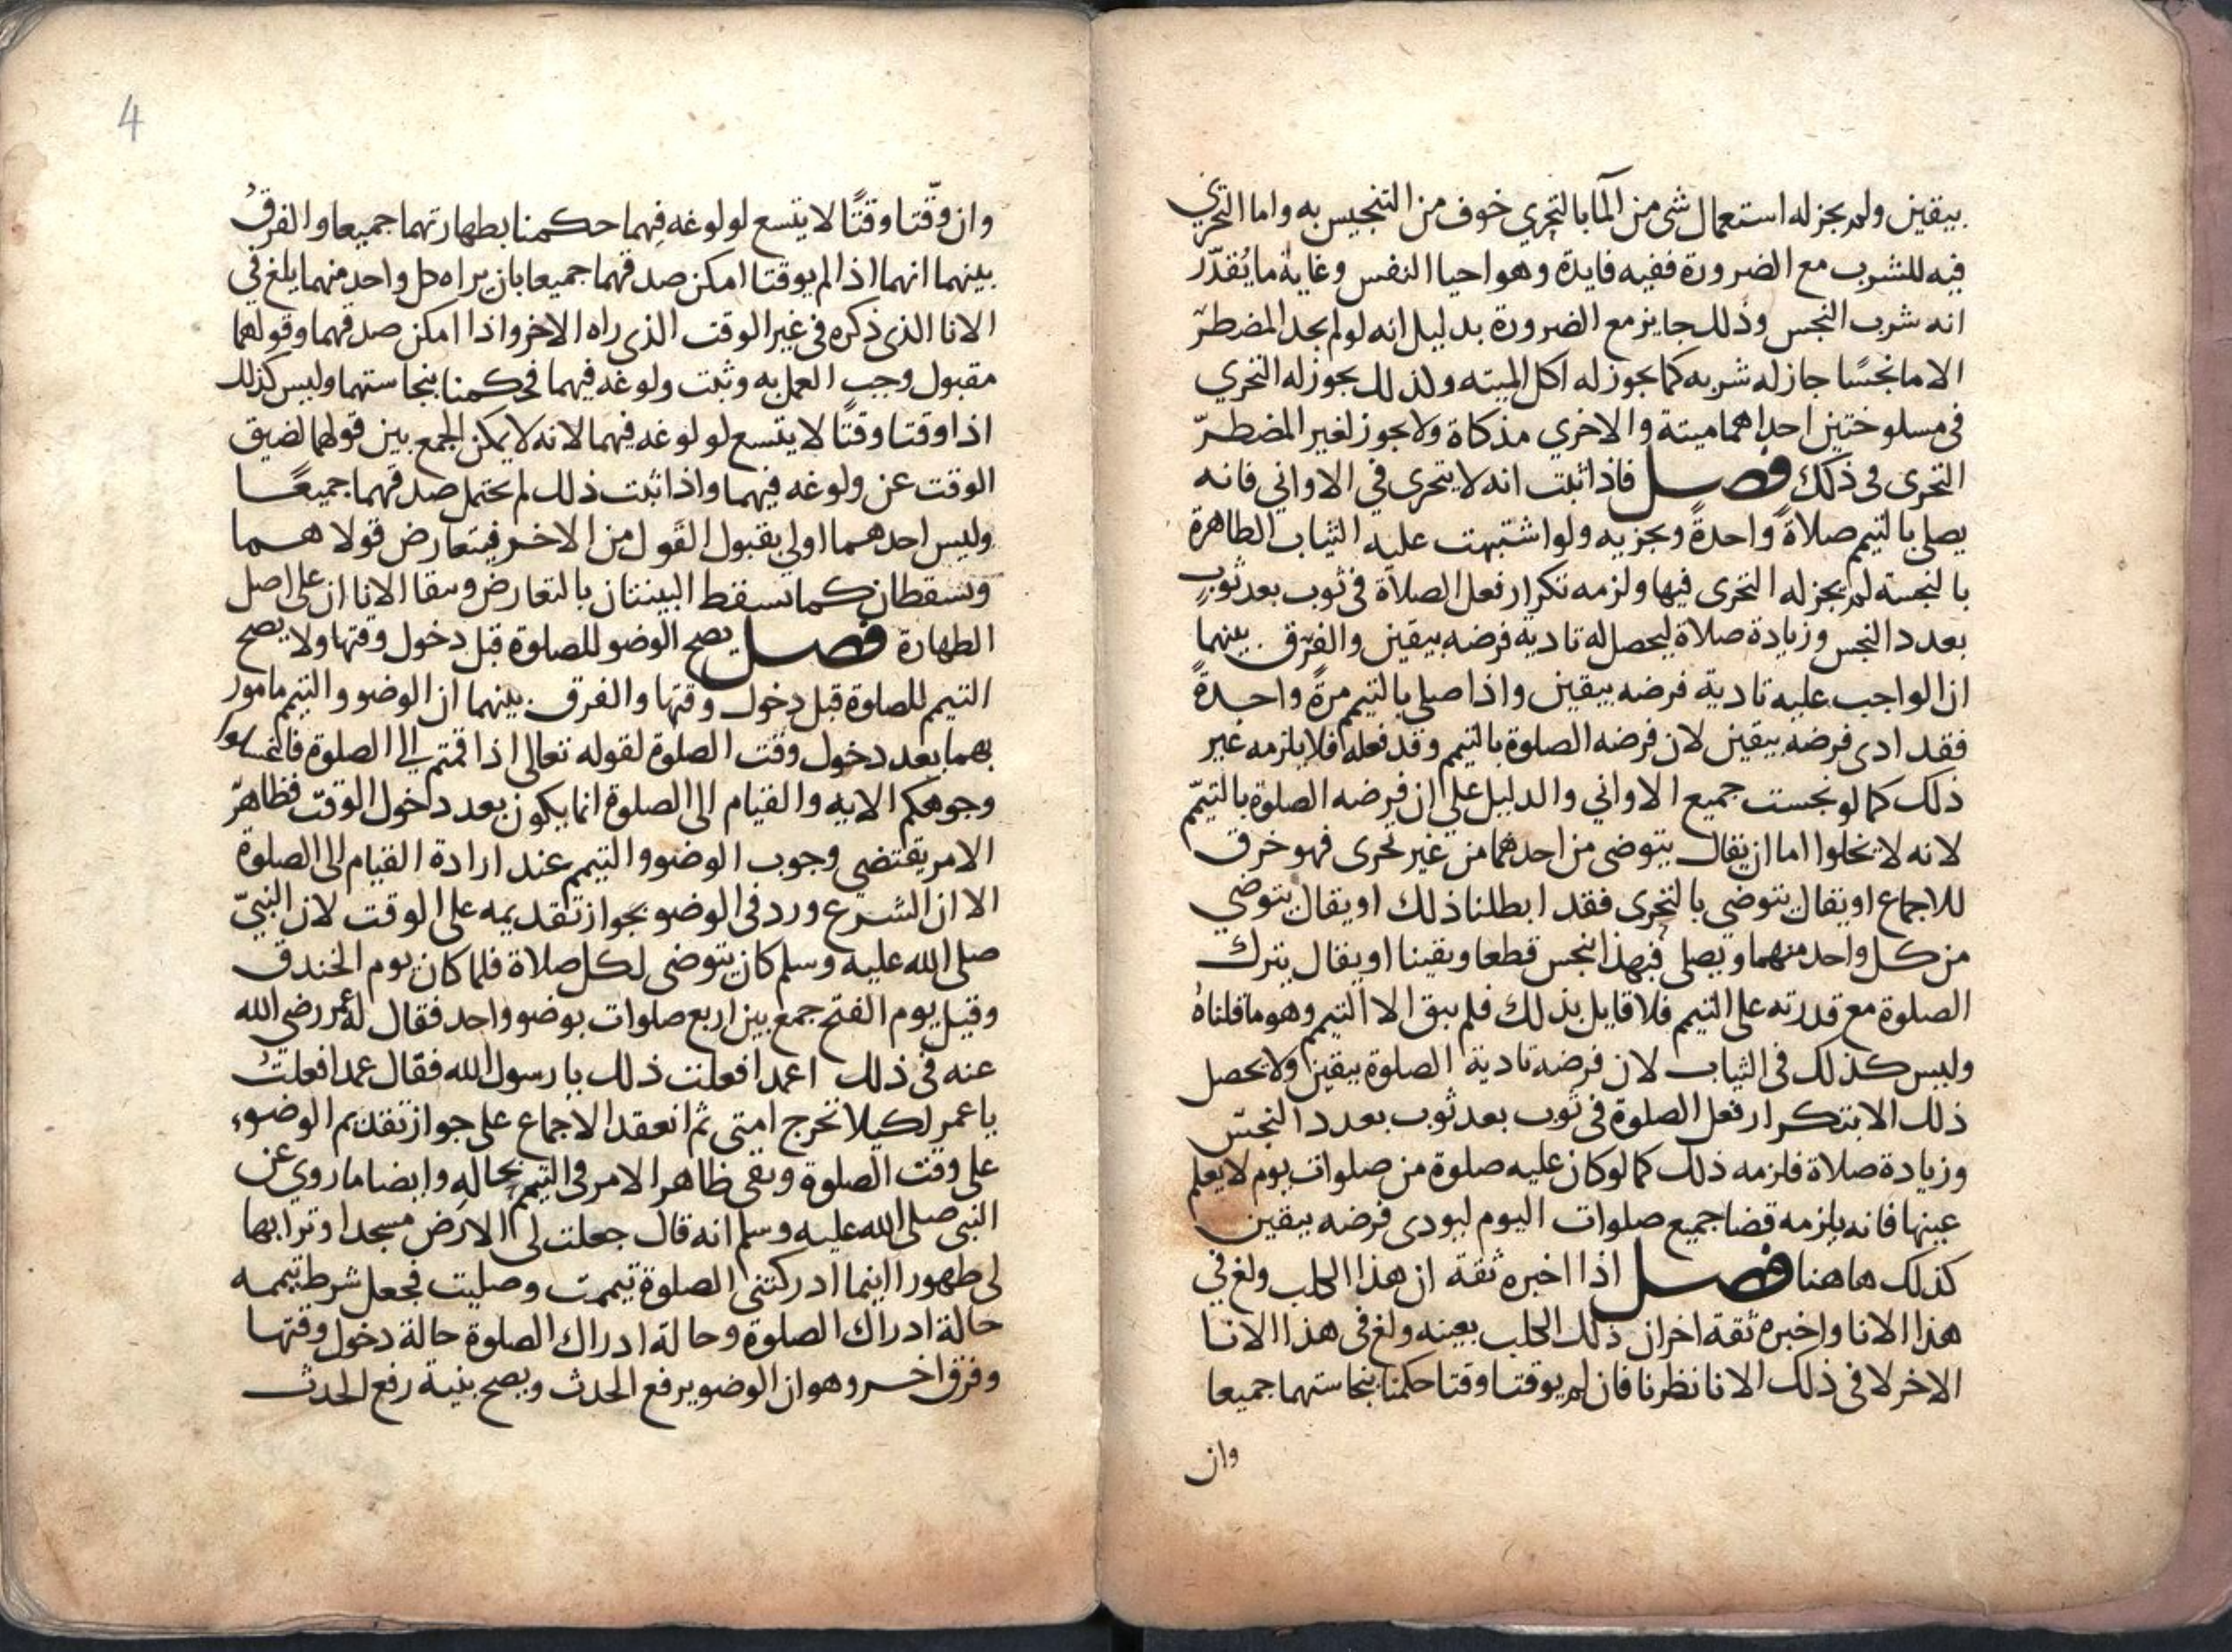 بيقين ولم يجز له استعمال شى من المآ بالتحري خوف من التنجيس به واما التحري
فيه للشرب مع الضرورة ففيه فايدة وهو احيا النفس وغاية ما يُقدّر
انه شرب النجس وذلك جايز مع الضرورة بدليل انه لو لم يجد المضطرّ
الا ما نجسًا جاز له شربه كما يجوز له اكل الميته ولذلك يجوز له التحري
فى مسلوختين احداهما ميتة والاخري مذكاة ولا يجوز لغير المضطرّ
التحرى فى ذلك فصل فاذا ثبت انه لا يتحرى في الاواني فانه
يصلى بالتيمم صلاةً واحدةً ويجزيه ولو اشتبهت عليه الثياب الطاهرة
بالنجسة لم يجز له التحرى فيها ولزمه تكرار فعل الصلاة فى ثوب بعد ثوبٍ
بعدد النجس وزيادة صلاة ليحصل له تادية فرضه بيقين والفرق بينهما
ان الواجب عليه تادية فرضه بيقين واذا صلى بالتيمم مرةً واحدةً
فقد ادى فرضه بيقين لان فرضه الصلوة بالتيمم وقد فعله فلا يلزمه غير
ذلك كما لو نجست جميع الاواني والدليل على ان فرضه الصلوة بالتيمّم
لانه لا يخلوا اما ان يقال يتوضى من احدهما من غير تحرى فهو خرق
للاجماع او يقال يتوضي بالتحرى فقد ابطلنا ذلك او يقال يتوضي
من كل واحد منهما ويصلى فبهذا نجس قطعا ويقينا او يقال يترك
الصلوة مع قدرته على التيمم فلا قايل بذلك فلم يبق الا التيمم وهو ما قلناهُ
وليس كذلك فى الثياب لان فرضه تادية الصلوة بيقين ولا يحصل
ذلك الا بتكرار فعل الصلوة فى ثوب بعد ثوب بعدد النجسّ
وزيادة صلاة فلزمه ذلك كما لو كان عليه صلوة من صلوات يوم لا يعلم
عينها فانه يلزمه قضا جميع صلوات اليوم ليودى فرضه بيقين
كذلك هاهنا فصل اذا اخبره ثقة ان هذا الكلب ولغ في
هذا الانا واخبره ثقة اخر ان ذلك الكلب بعينه ولغ فى هذا الانا
الاخر لا فى ذلك الانا نظرنا فان لم يوقتا وقتا حكمنا بنجاستهما جميعا
وان
4
وان وقّتا وقتًا لا يتسع لولوغه فيهما حكمنا بطهارتهما جميعا والفرقُ
بينهما انهما اذا لم يوقتا امكن صدقهما جميعا بان يراه كل واحد منهما يلغ في
الانا الذى ذكره فى غير الوقت الذى راه الاخر واذا امكن صدقهما وقولهما
مقبول وجب العمل به وثبت ولوغه فيهما فحكمنا بنجاستهما وليس كذلك
اذا وقتا وقتًا لا يتسع لولوغه فيهما لانه لا يمكن الجمع بين قولهما لضيق
الوقت عن ولوغه فيهما واذا ثبت ذلك لم يحتمل صدقهما جميعًا
وليس احدهما اولى بقبول القول من الاخر فيتعارض قولاهما
ويسقطان كما تسقط البينتان بالتعارض ويبقا الاناان على اصل
الطهارة فصل يصح الوضو للصلوة قبل دخول وقتها ولا يصح
التيمم للصلوة قبل دخول وقتها والفرق بينهما ان الوضو والتيمم مامور
بهما بعد دخول وقت الصلوة لقوله تعالى اذا قمتم الى الصلوة فاغسلوا
وجوهكم الايه والقيام الى الصلوة انما يكون بعد دخول الوقت فظاهرّ
الامر يقتضي وجوب الوضو والتيمم عند ارادة القيام الى الصلوة
الا ان الشرع ورد فى الوضو بجواز تقديمه على الوقت لان النبيّ
صلى الله عليه وسلم كان يتوضى لكل صلاة فلما كان يوم الخندق
وقيل يوم الفتح جمع بين اربع صلوات بوضو واحد فقال له عمر رضى الله
عنه فى ذلك اعمدا فعلت ذلك يا رسول الله فقال عمدا فعلتُ
يا عمر لكيلا تحرج امتى ثم انعقد الاجماع على جواز تقديم الوضوء
على وقت الصلوة وبقى ظاهر الامر فى التيمم بحاله وايضا ما روي عن
النبى صلى الله عليه وسلم انه قال جعلت لى الارض مسجدا وترابها
لى طهورا اينما ادركتنى الصلوة تيممت وصليت فجعل شرط تيممه
حالة ادراك الصلوة وحالة ادراك الصلوة حالة دخول وقتها
وفرق اخر وهو ان الوضو يرفع الحدث ويصح بنية رفع الحدث